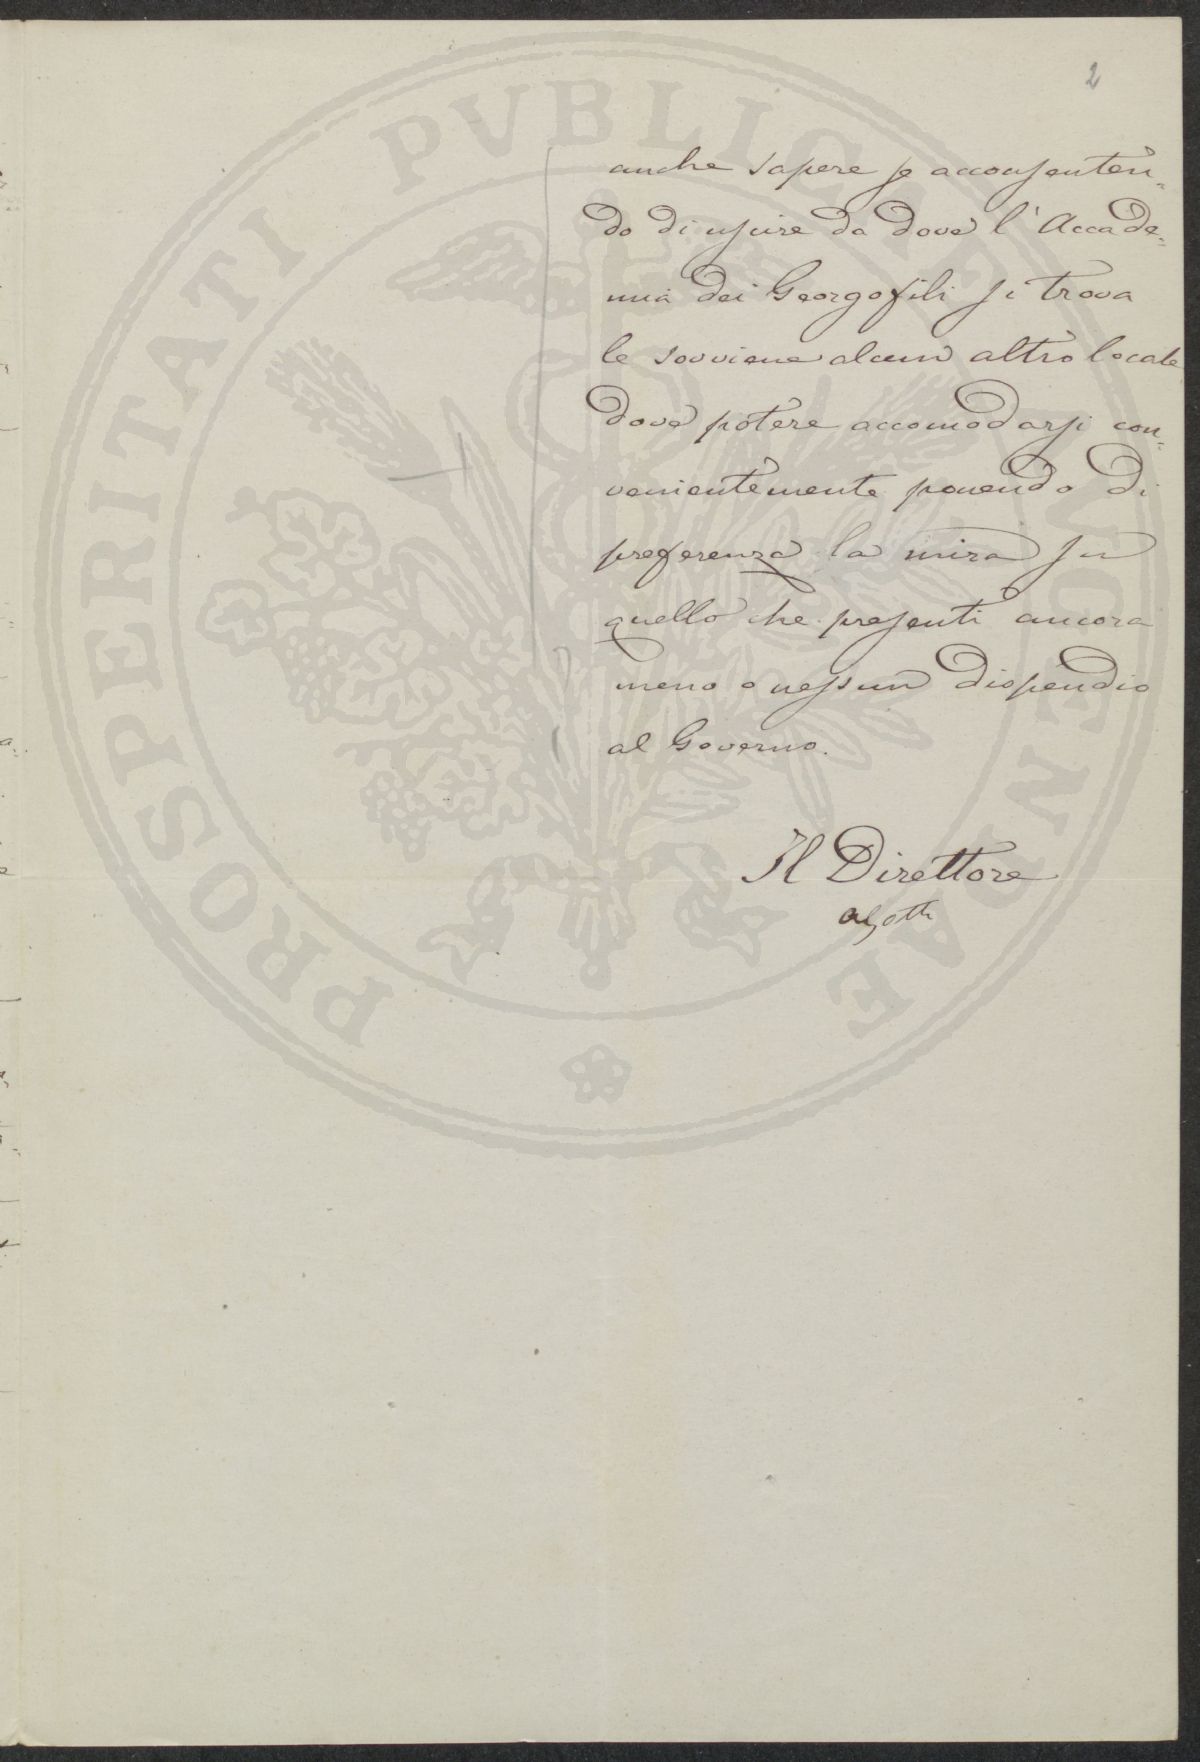 2
anche sapere se acconsenten=
do di uscire da dove l'Accade=
mia dei Georgofili si trova
le sovviene alcun altro locale
dove potere accomodarsi con=
venientemente ponendo di
preferenza la mira su
quello che presenti ancora
meno o nessun dispendio
al Governo.
Il Direttore
PROSPERITATI PVBLICAE AVGENDAE